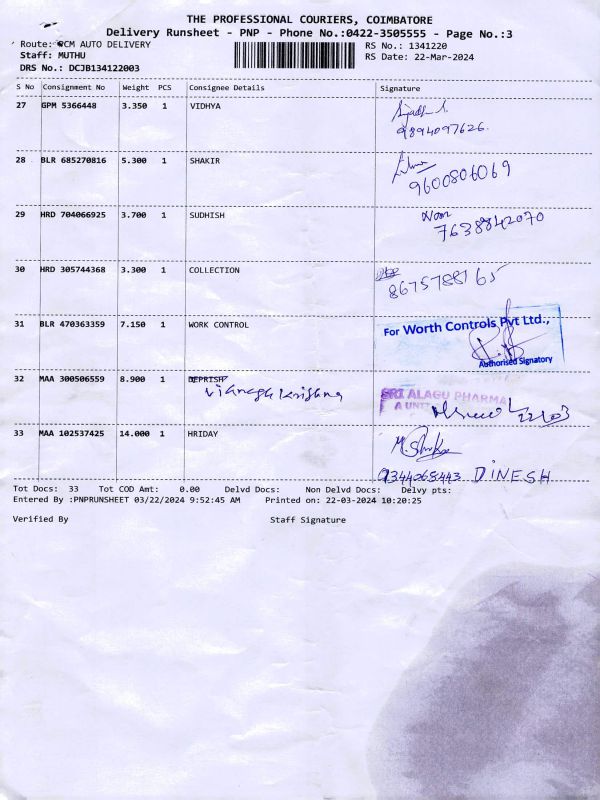 THE PROFESSIONAL COURIERS, COIMBATORE
Delivery Runsheet - PNP - Phone No.:0422-3505555 - Page No.:3
Route: PCM AUTO DELIVERY RS No.: 1341220
Staff: MUTHU RS Date: 22-Mar-2024
DRS No.: DCJB134122003
S No Consignment No Weight PCS Consignee Details Signature
27 GPM 5366448 3.350 1 VIDHYA
9894097626
28 BLR 685270816 5.300 1 SHAKIR
9600806069
29 HRD 704066925 3.700 1 SUDHISH
7638842070
30 HRD 305744368 3.300 1 COLLECTION
8675788765
31 BLR 470363359 7.150 1 WORK CONTROL
For Worth Controls Pvt Ltd.,
Authorised Signatory
32 MAA 300506559 8.900 1 DEPRISH
Vignesh Krishna
SRI ALAGU PHARMA
A UNIT
22/03
33 MAA 102537425 14.000 1 HRIDAY
9344068443 DINESH
Tot Docs: 33 Tot COD Amt: 0.00 Delvd Docs: Non Delvd Docs: Delvy pts:
Entered By :PNPRUNSHEET 03/22/2024 9:52:45 AM Printed on: 22-03-2024 10:20:25
Verified By Staff Signature